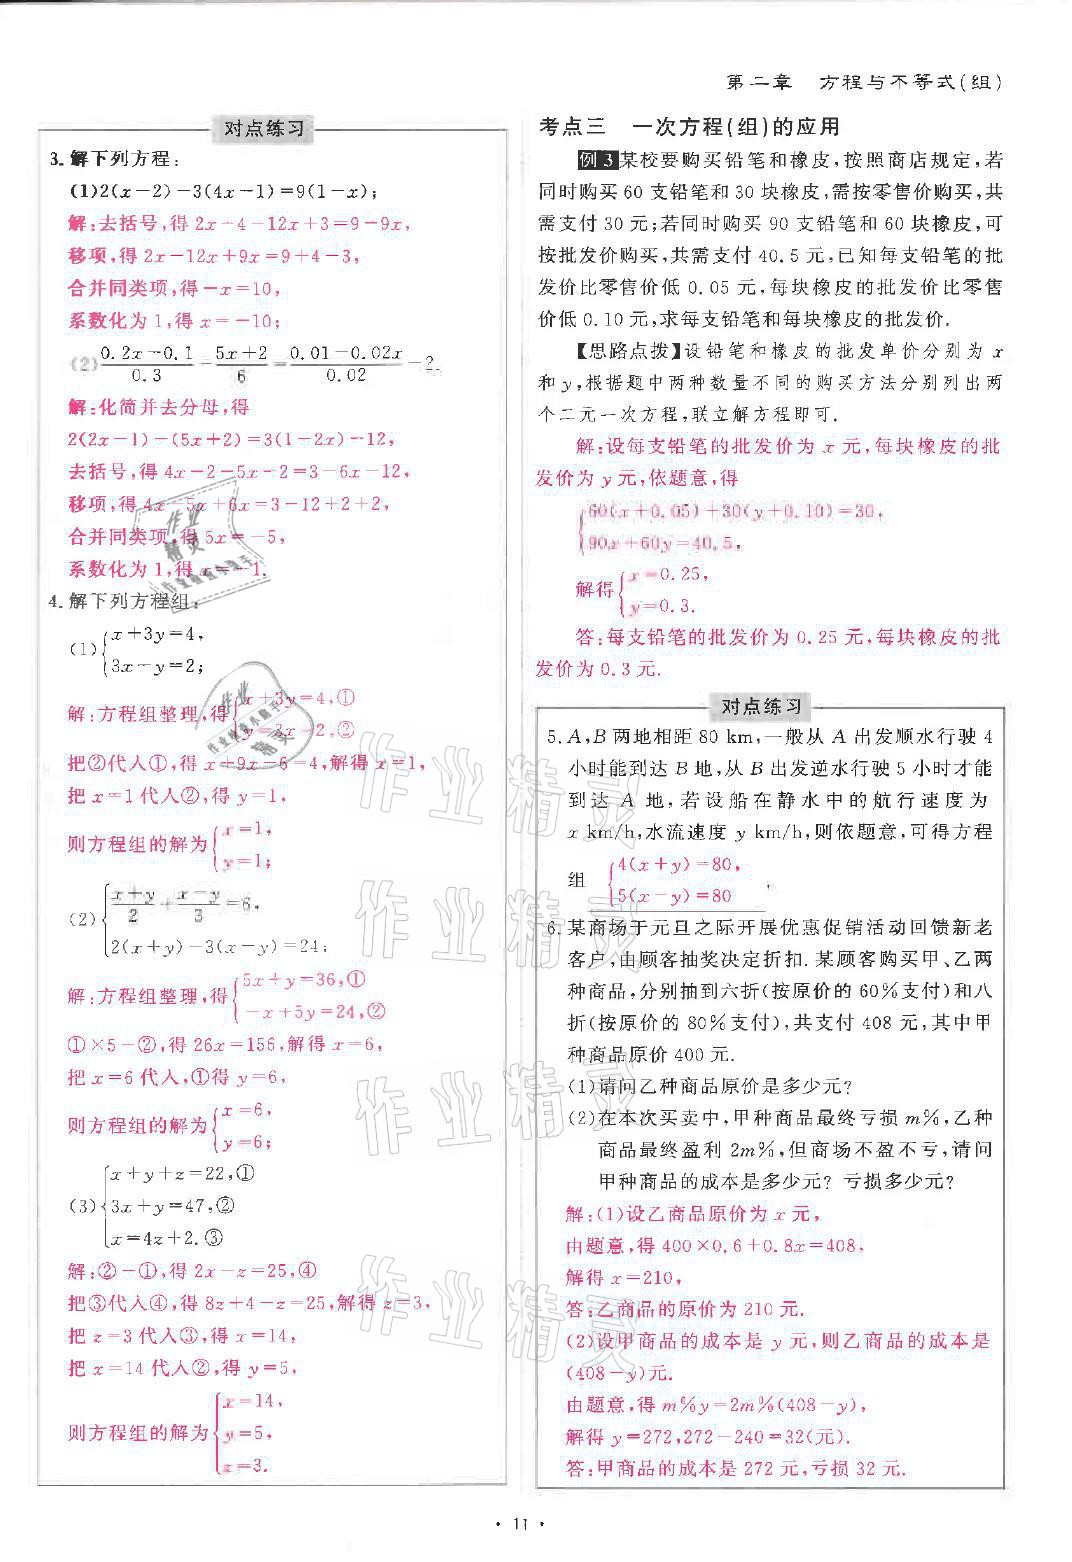 第二章　方程与不等式(组)
对点练习
3. 解下列方程:
(1)2(x-2)-3(4x-1)=9(1-x);
解:去括号,得 2x-4-12x+3=9-9x,
移项,得 2x-12x+9x=9+4-3,
合并同类项,得-x=10,
系数化为 1,得 x=-10;
(2)(0.2x-0.1)/0.3-(5x+2)/6=(0.01-0.02x)/0.02-2.
解:化简并去分母,得
2(2x-1)-(5x+2)=3(1-2x)-12,
去括号,得 4x-2-5x-2=3-6x-12,
移项,得 4x-5x+6x=3-12+2+2,
合并同类项,得 5x=-5,
系数化为 1,得 x=-1.
4. 解下列方程组:
(1){x+3y=4,
3x-y=2;
解:方程组整理,得{x+3y=4,①
y=3x-2,②
把②代入①,得 x+9x-6=4,解得 x=1,
把 x=1 代入②,得 y=1,
则方程组的解为{x=1,
y=1;
(2){(x+y)/2+(x-y)/3=6,
2(x+y)-3(x-y)=24;
解:方程组整理,得{5x+y=36,①
-x+5y=24,②
①×5-②,得 26x=156,解得 x=6,
把 x=6 代入,①得 y=6,
则方程组的解为{x=6,
y=6;
(3){x+y+z=22,①
3x+y=47,②
x=4z+2.③
解:②-①,得 2x-z=25,④
把③代入④,得 8z+4-z=25,解得 z=3,
把 z=3 代入③,得 x=14,
把 x=14 代入②,得 y=5,
则方程组的解为{x=14,
y=5,
z=3.
考点三　一次方程(组)的应用
例 3 某校要购买铅笔和橡皮,按照商店规定,若
同时购买 60 支铅笔和 30 块橡皮,需按零售价购买,共
需支付 30 元;若同时购买 90 支铅笔和 60 块橡皮,可
按批发价购买,共需支付 40.5 元,已知每支铅笔的批
发价比零售价低 0.05 元,每块橡皮的批发价比零售
价低 0.10 元,求每支铅笔和每块橡皮的批发价.
【思路点拨】设铅笔和橡皮的批发单价分别为 x
和 y,根据题中两种数量不同的购买方法分别列出两
个二元一次方程,联立解方程即可.
解:设每支铅笔的批发价为 x 元,每块橡皮的批
发价为 y 元,依题意,得
{60(x+0.05)+30(y+0.10)=30,
90x+60y=40.5,
解得{x=0.25,
y=0.3.
答:每支铅笔的批发价为 0.25 元,每块橡皮的批
发价为 0.3 元.
对点练习
5. A,B 两地相距 80 km,一般从 A 出发顺水行驶 4
小时能到达 B 地,从 B 出发逆水行驶 5 小时才能
到达 A 地,若设船在静水中的航行速度为
x km/h,水流速度 y km/h,则依题意,可得方程
组 {4(x+y)=80,
5(x-y)=80
6. 某商场于元旦之际开展优惠促销活动回馈新老
客户,由顾客抽奖决定折扣. 某顾客购买甲、乙两
种商品,分别抽到六折(按原价的 60%支付)和八
折(按原价的 80%支付),共支付 408 元,其中甲
种商品原价 400 元.
(1)请问乙种商品原价是多少元?
(2)在本次买卖中,甲种商品最终亏损 m%,乙种
商品最终盈利 2m%,但商场不盈不亏,请问
甲种商品的成本是多少元? 亏损多少元?
解:(1)设乙商品原价为 x 元,
由题意,得 400×0.6+0.8x=408,
解得 x=210,
答:乙商品的原价为 210 元.
(2)设甲商品的成本是 y 元,则乙商品的成本是
(408-y)元.
由题意,得 m%y=2m%(408-y),
解得 y=272,272-240=32(元).
答:甲商品的成本是 272 元,亏损 32 元.
· 11 ·
作业精灵
作业精灵
作业精灵
作业精灵